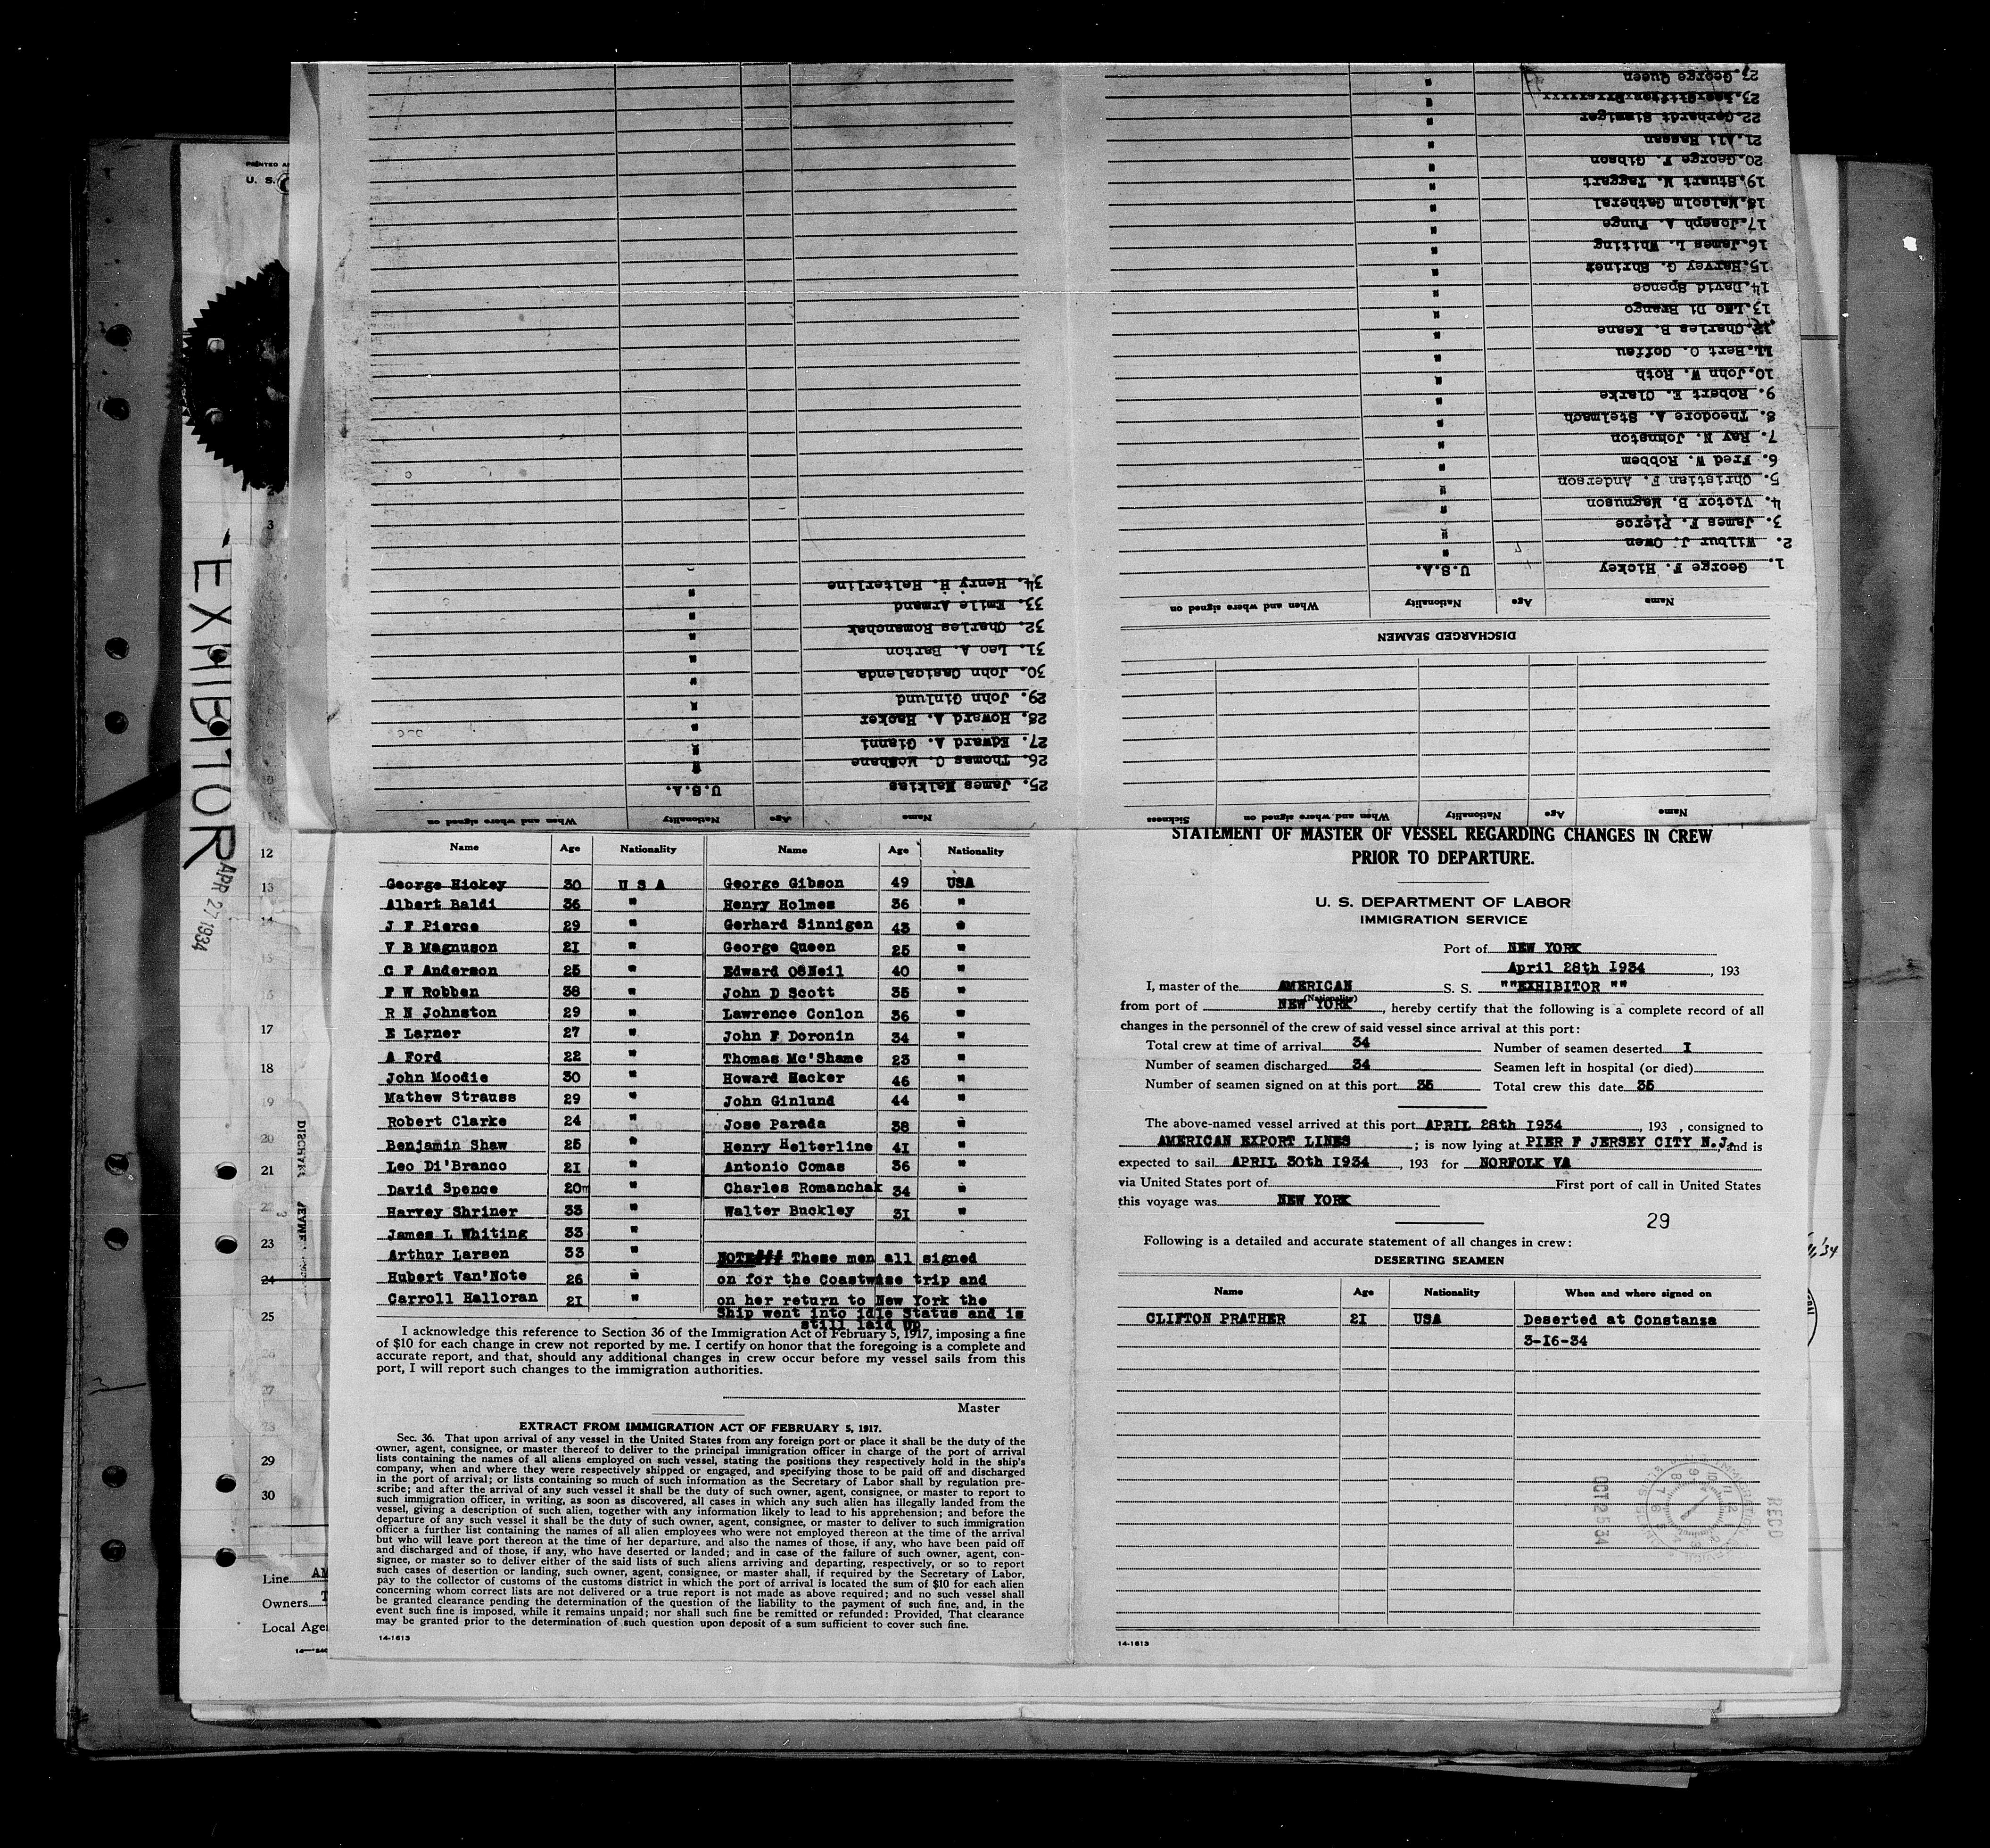 PRINTED
U. S.
EXHIBITOR
APR 27 1934
3
10
12
13
14
15
16
17
18
19
20
21
22
23
24
25
26
27
28
29
30
Line AM
Owners T
Local Age
Name Age Nationality When and where signed on
25. James U.S.A.
26. Thomas C. McShane "
27. Edward A. Gianni "
28. Howard A. Hacker "
29. John Ginlund "
30. John Casigalenda "
31. Leo A. Barton "
32. Charles Romanchak "
33. Emile Armand "
34. Henry H. Helterline "
Name Age Nationality When and where signed on Sickness
DISCHARGED SEAMEN
Name Age Nationality When and where signed on
1. George F. Hickey U.S.A.
2. Wilbur J. Owen "
3. James F. Pierce "
4. Victor B. Magnuson "
5. Christian F. Anderson "
6. Fred W. Robbem "
7. Ray N. Johnston "
8. Theodore A. Stelmach "
9. Robert E. Clarke "
10. John W. Roth "
11. Bert O. Goffeu "
12. Charles B. Keane "
13. Leo Di Brango "
14. David Spence "
15. Harvey G. Shriner "
16. James L Whiting "
17. Joseph A. Funge "
18. Malcolm Catheral "
19. Stuart W. Taggart "
20. George F. Gibson "
21. Ali Hassan "
22. Gerhardt Sinniger "
23.
23. George Queen "
Name Age Nationality Name Age Nationality
George Hickey 30 U S A George Gibson 49 USA
Albert Baldi 36 " Henry Holmes 36 "
J F Pierce 29 " Gerhard Sinnigen 43 "
V B Magnuson 21 " George Queen 25 "
C F Anderson 25 " Edward O'Neil 40 "
F W Robben 38 " John D Scott 35 "
R N Johnston 29 " Lawrence Conlon 36 "
E Larner 27 " John F Doronin 34 "
A Ford 22 " Thomas Mc'Shame 23 "
John Moodie 30 " Howard Hacker 46 "
Mathew Strauss 29 " John Ginlund 44 "
Robert Clarke 24 " Jose Parada 38 "
Benjamin Shaw 25 " Henry Helterline 41 "
Leo Di'Branco 21 " Antonio Comas 36 "
David Spence 20 " Charles Romanchak 34 "
Harvey Shriner 33 " Walter Buckley 31 "
James L Whiting 33 "
Arthur Larsen 33 " NOTE### These men all signed
Hubert Van'Note 26 " on for the Coastwise trip and
Carroll Halloran 21 " on her return to New York the
Ship went into idle Status and is
still laid up
I acknowledge this reference to Section 36 of the Immigration Act of February 5, 1917, imposing a fine
of $10 for each change in crew not reported by me. I certify on honor that the foregoing is a complete and
accurate report, and that, should any additional changes in crew occur before my vessel sails from this
port, I will report such changes to the immigration authorities.
Master
EXTRACT FROM IMMIGRATION ACT OF FEBRUARY 5, 1917.
Sec. 36. That upon arrival of any vessel in the United States from any foreign port or place it shall be the duty of the
owner, agent, consignee, or master thereof to deliver to the principal immigration officer in charge of the port of arrival
lists containing the names of all aliens employed on such vessel, stating the positions they respectively hold in the ship's
company, when and where they were respectively shipped or engaged, and specifying those to be paid off and discharged
in the port of arrival; or lists containing so much of such information as the Secretary of Labor shall by regulation pre-
scribe; and after the arrival of any such vessel it shall be the duty of such owner, agent, consignee, or master to report to
such immigration officer, in writing, as soon as discovered, all cases in which any such alien has illegally landed from the
vessel, giving a description of such alien, together with any information likely to lead to his apprehension; and before the
departure of any such vessel it shall be the duty of such owner, agent, consignee, or master to deliver to such immigration
officer a further list containing the names of all alien employees who were not employed thereon at the time of the arrival
but who will leave port thereon at the time of her departure, and also the names of those, if any, who have been paid off
and discharged and of those, if any, who have deserted or landed; and in case of the failure of such owner, agent, con-
signee, or master so to deliver either of the said lists of such aliens arriving and departing, respectively, or so to report
such cases of desertion or landing, such owner, agent, consignee, or master shall, if required by the Secretary of Labor,
pay to the collector of customs of the customs district in which the port of arrival is located the sum of $10 for each alien
concerning whom correct lists are not delivered or a true report is not made as above required; and no such vessel shall
be granted clearance pending the determination of the question of the liability to the payment of such fine, and, in the
event such fine is imposed, while it remains unpaid; nor shall such fine be remitted or refunded: Provided, That clearance
may be granted prior to the determination of such question upon deposit of a sum sufficient to cover such fine.
14-1613
STATEMENT OF MASTER OF VESSEL REGARDING CHANGES IN CREW
PRIOR TO DEPARTURE.
U. S. DEPARTMENT OF LABOR
IMMIGRATION SERVICE
Port of NEW YORK
April 28th 1934, 193
I, master of the AMERICAN S. S. ""EXHIBITOR ""
(Nationality)
from port of NEW YORK, hereby certify that the following is a complete record of all
changes in the personnel of the crew of said vessel since arrival at this port:
Total crew at time of arrival 34 Number of seamen deserted I
Number of seamen discharged 34 Seamen left in hospital (or died)
Number of seamen signed on at this port 35 Total crew this date 35
The above-named vessel arrived at this port APRIL 28th 1934, 193 , consigned to
AMERICAN EXPORT LINES ; is now lying at PIER F JERSEY CITY N.J., and is
expected to sail APRIL 30th 1934, 193 for NORFOLK VA
via United States port of First port of call in United States
this voyage was NEW YORK
29
Following is a detailed and accurate statement of all changes in crew:
DESERTING SEAMEN
Name Age Nationality When and where signed on
CLIFTON PRATHER 21 USA Deserted at Constansa
3-16-34
RECD
OCT 25 34
14-1613